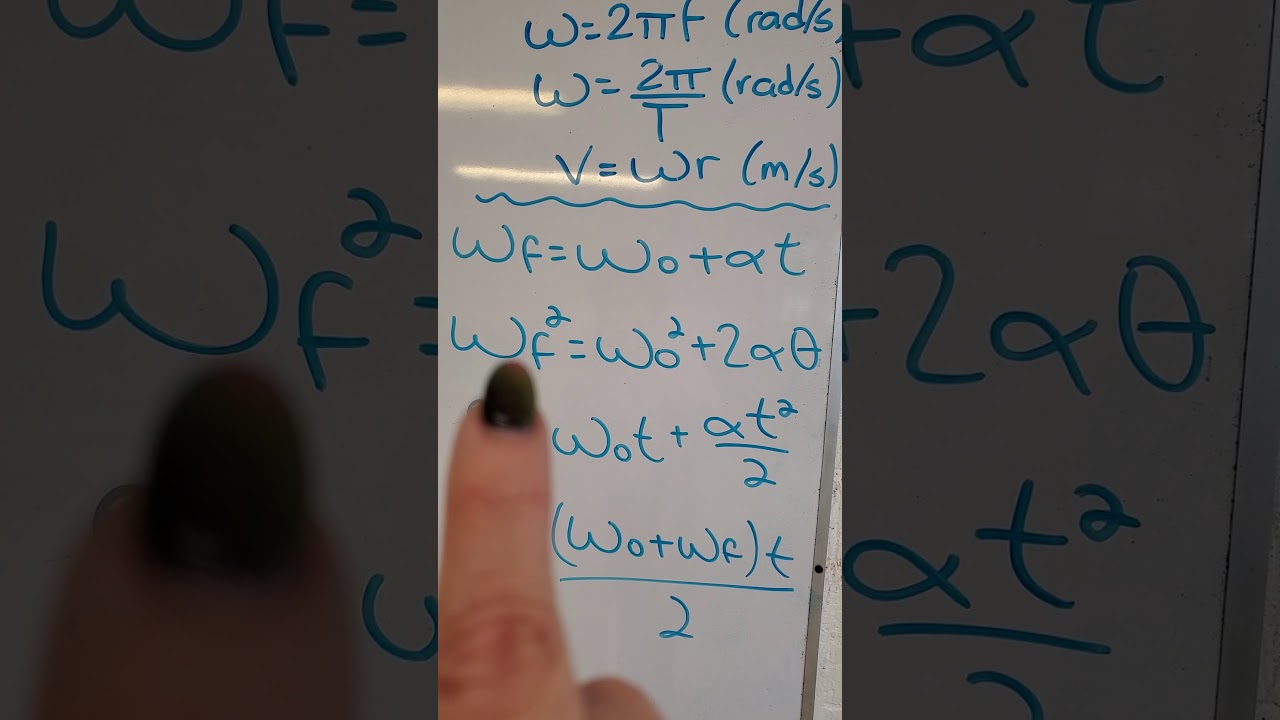 ω=2πf (rad/s)
ω=2π/T (rad/s)
v=ωr (m/s)
ωf=ω₀+αt
ωf²=ω₀²+2αθ
ω₀t+αt²/2
(ω₀+ωf)t/2